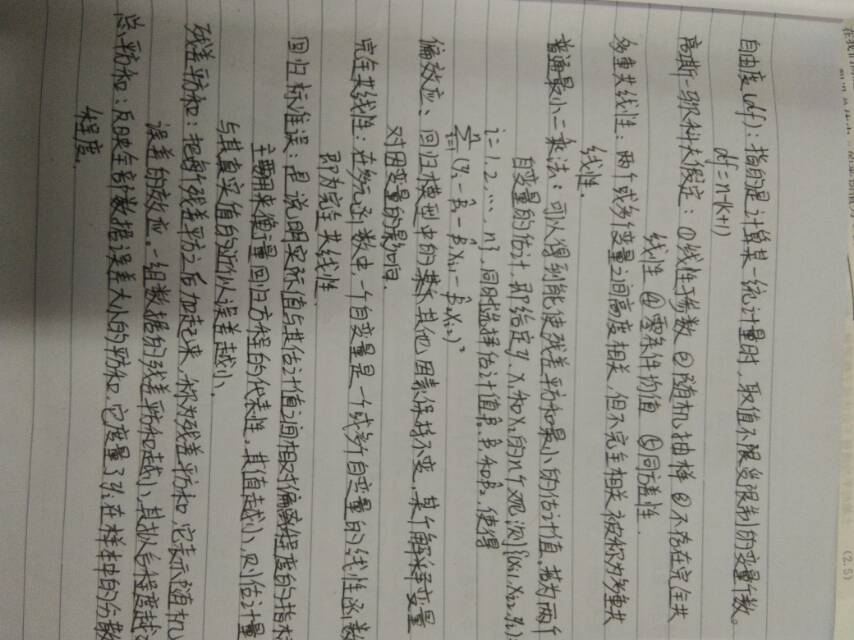 自由度(df)：指的是计算某一统计量时，取值不限受限制的变量个数。
df=n-(k+1)
高斯-马尔科夫假定：①线性于参数 ②随机抽样 ③不存在完全共
线性 ④零条件均值 ⑤同方差性.
多重共线性：两个或多个变量之间高度相关，但不完全相关被称为多重共
线性.
普通最小二乘法：可以得到能使残差平方和最小的估计值。若为两个
自变量的估计，即给定y、x₁和x₂的n个观测{(xi1,xi2,yi):
i=1,2,…,n}，同时选择估计值β̂₀、β̂₁和β̂₂，使得
偏效应、回归模型中的某个其他因素保持不变，某个解释变量
对因变量的影响.
完全共线性：在多元函数中一个自变量是一个或多个自变量的线性函数
即为完全共线性
回归标准误：是说明实际值与其估计值之间相对偏离程度的指标
主要用来衡量回归方程的代表性，其值越小，则估计量
与其真实值的近似误差越小.
残差平方和：把每个残差平方之后加起来，称为残差平方和，它表示随机
误差的效应。一组数据的残差平方和越小，其拟合程度越
总平方和：反映全部数据误差大小的平方和，它度量了yi在样本中的分散
程度.
(2.5)